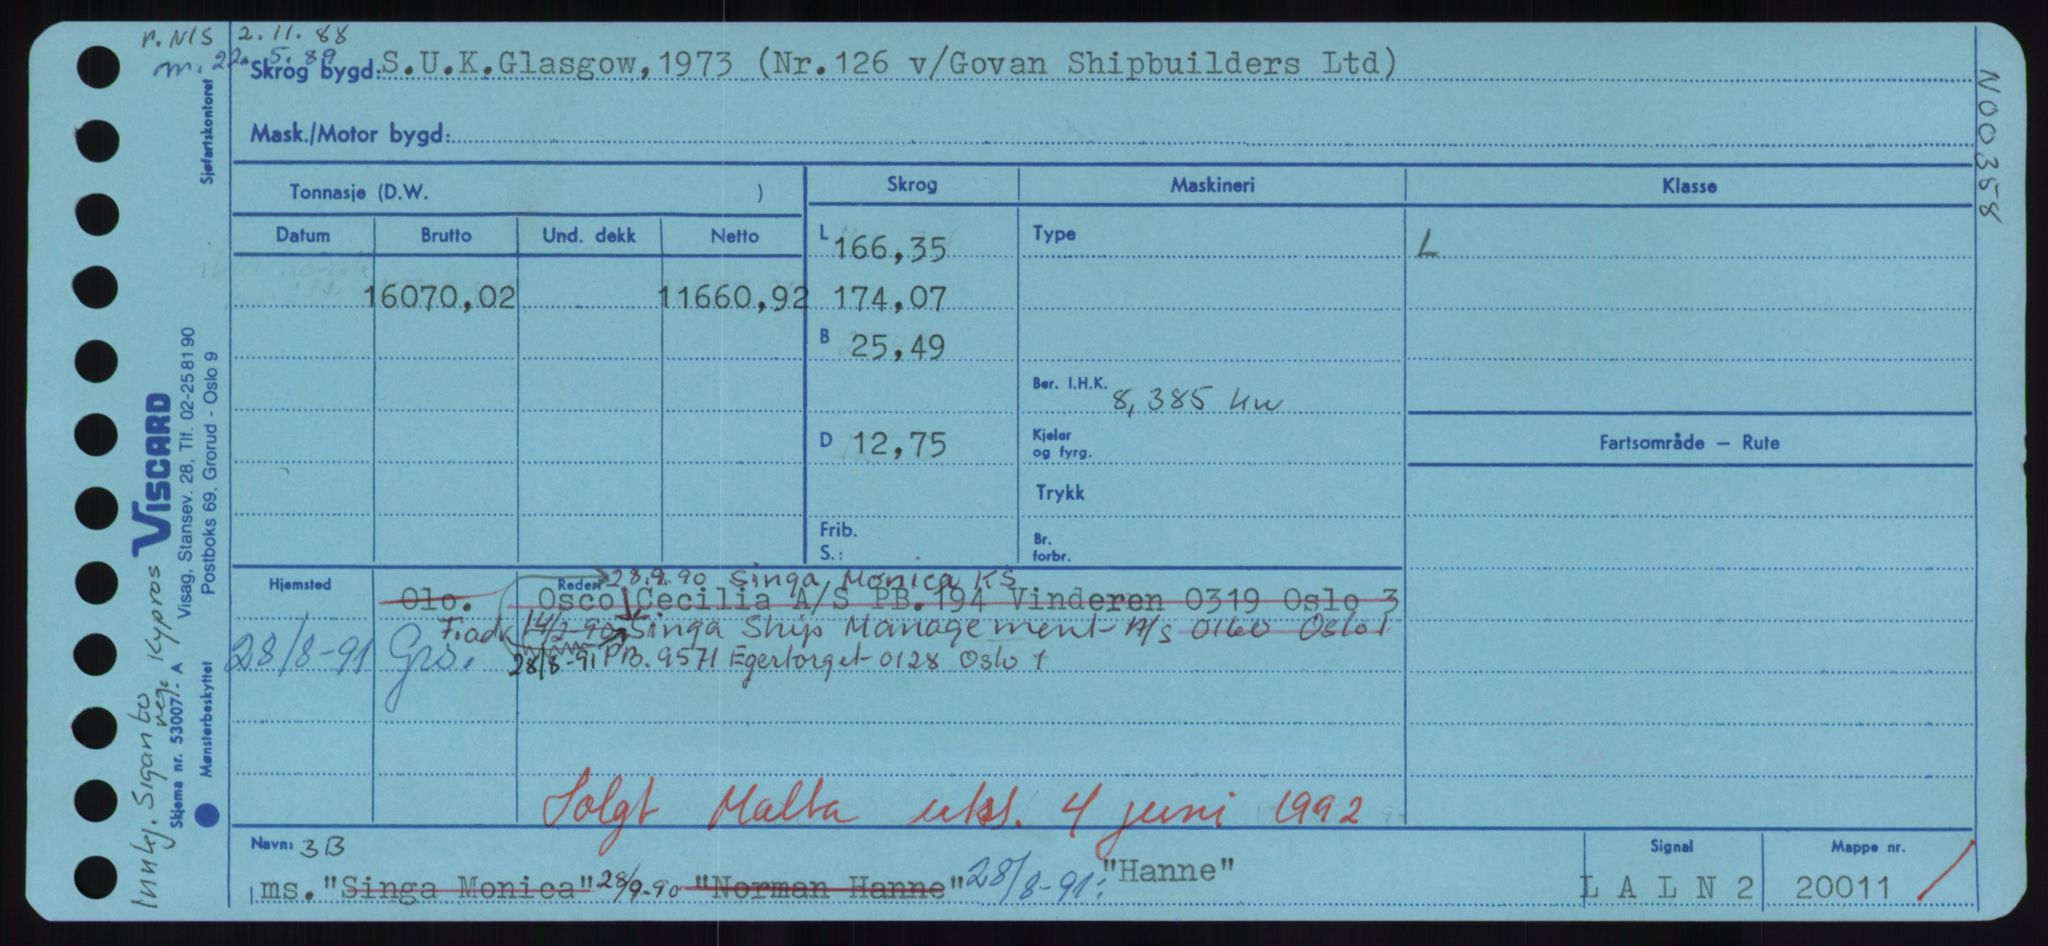 r. NIS 2.11.88
m. 22.5.89
Skrog bygd: S.U.K.Glasgow, 1973 (Nr. 126 v/Govan Shipbuilders Ltd)
Mask./Motor bygd:
Tonnasje (D.W. )
Skrog Maskineri Klasse
Datum Brutto Und. dekk Netto
L 166,35 Type L
16070,02 11660,92 174,07
B 25,49
Ber. I.H.K. 8,385 kw
D 12,75 Kjeler og fyrg.
Fartsområde — Rute
Trykk
Frib. S.: Br. forbr.
Hjemsted Rederi 28.9.90 Singa Monica KS
Olo. Osco Cecilia A/S PB. 194 Vinderen 0319 Oslo 3
14/2-90 Singa Ship Management A/s 0160 Oslo 1
28/8-91 Grs. 28/8-91 PB. 9571 Egertorget 0128 Oslo 1
Solgt Malta uksl. 4 juni 1992
Navn: 3B Signal Mappe nr.
ms. "Singa Monica" 28/9-90 "Norman Hanne" 28/8-91: "Hanne" L A L N 2 20011
N00358
Sjøfartskontoret
VISCARD
Visag, Stansev. 28, Tlf. 02-25 81 90
Postboks 69, Grorud - Oslo 9
Skjema nr. 53007 - A
Mønsterbeskyttet
Innkj. Sigan bo
reg. Kypros